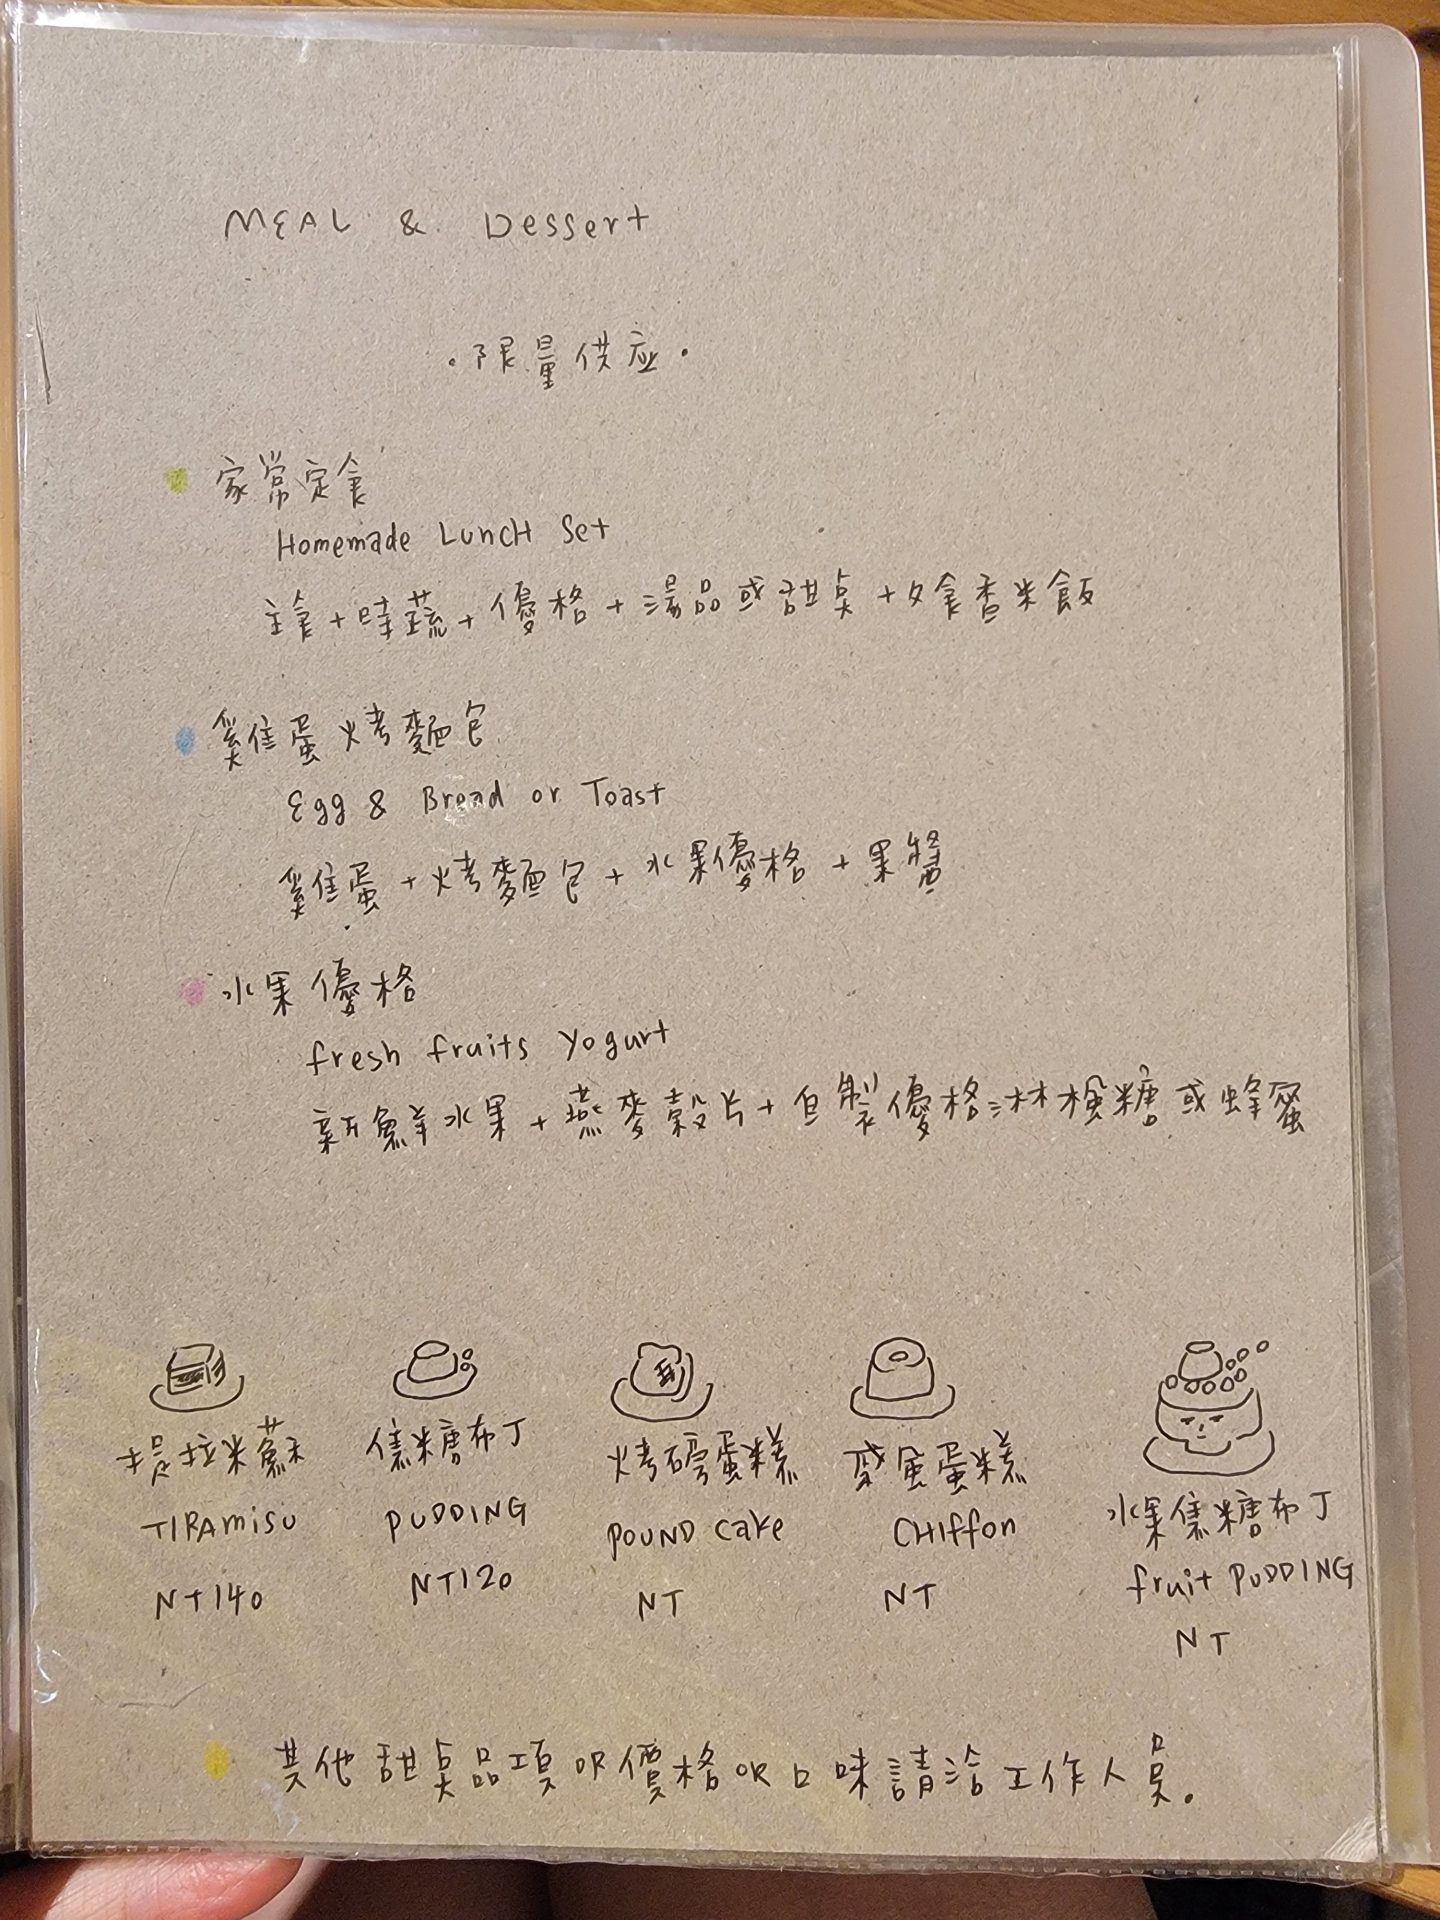 MEAL & Dessert
·限量供应·
家常定食
Homemade Lunch Set
主食+時蔬+優格+湯品或甜點+香米飯
雞蛋烤麵包
Egg & Bread or Toast
雞蛋+烤麵包+水果優格+果醬
水果優格
fresh fruits Yogurt
新鮮水果+燕麥穀片+自製優格淋楓糖或蜂蜜
提拉米蘇
TIRAmisu
NT140
焦糖布丁
PUDDING
NT120
烤磅蛋糕
POUND cake
NT
戚風蛋糕
CHIffon
NT
水果焦糖布丁
fruit PUDDING
NT
其他甜點品項OR價格OR口味請洽工作人員。